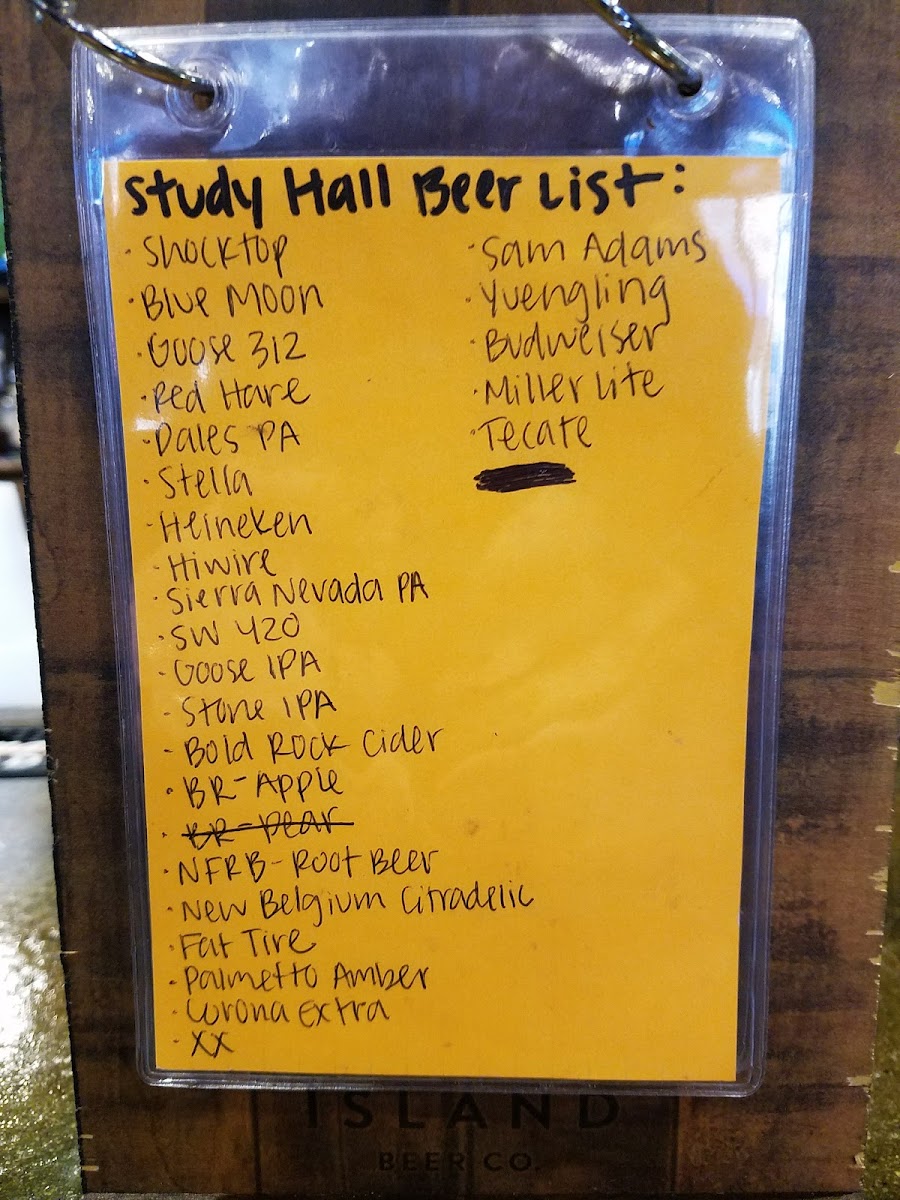 Study Hall Beer List:
· Shocktop
· Blue Moon
· Goose 312
· Red Hare
· Dales PA
· Stella
· Heineken
· Hiwire
· Sierra Nevada PA
· SW 420
· Goose IPA
- Stone IPA
- Bold Rock Cider
· BR-Apple
· BR-Pear
· NFRB-Root Beer
· New Belgium Citradelic
· Fat Tire
· Palmetto Amber
· Corona Extra
· XX
· Sam Adams
· Yuengling
· Budweiser
· Miller Lite
· Tecate
ISLAND
BEER CO.